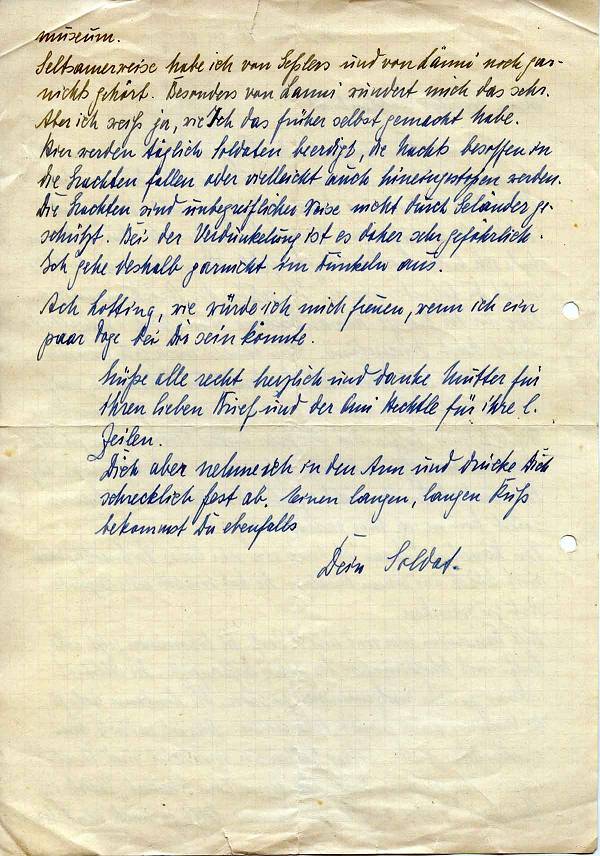 museum.
Seltsamerweise habe ich von Seßlers und von Länni noch gar-
nichts gehört. Besonders von Lanni wundert mich das sehr.
Aber ich weiß ja, wie ich das früher selbst gemacht habe.
Hier werden täglich Soldaten beerdigt, die Nachts besoffen in
die Grachten fallen oder vielleicht auch hineingestoßen werden.
Die Grachten sind unbegreiflicher Weise nicht durch Geländer ge-
schützt. Bei der Verdunkelung ist es daher sehr gefährlich.
Ich gehe deshalb garnicht im Dunkeln aus.
Ach Lotting, wie würde ich mich freuen, wenn ich ein
paar Tage bei Dir sein könnte.
Grüße alle recht herzlich und danke Mutter für
ihren lieben Brief und der Omi Hechtle für ihre l.
Zeilen.
Dich aber nehme ich in den Arm und drücke Dich
schrecklich fest ab. Einen langen, langen Kuß
bekommst Du ebenfalls
Dein Soldat.